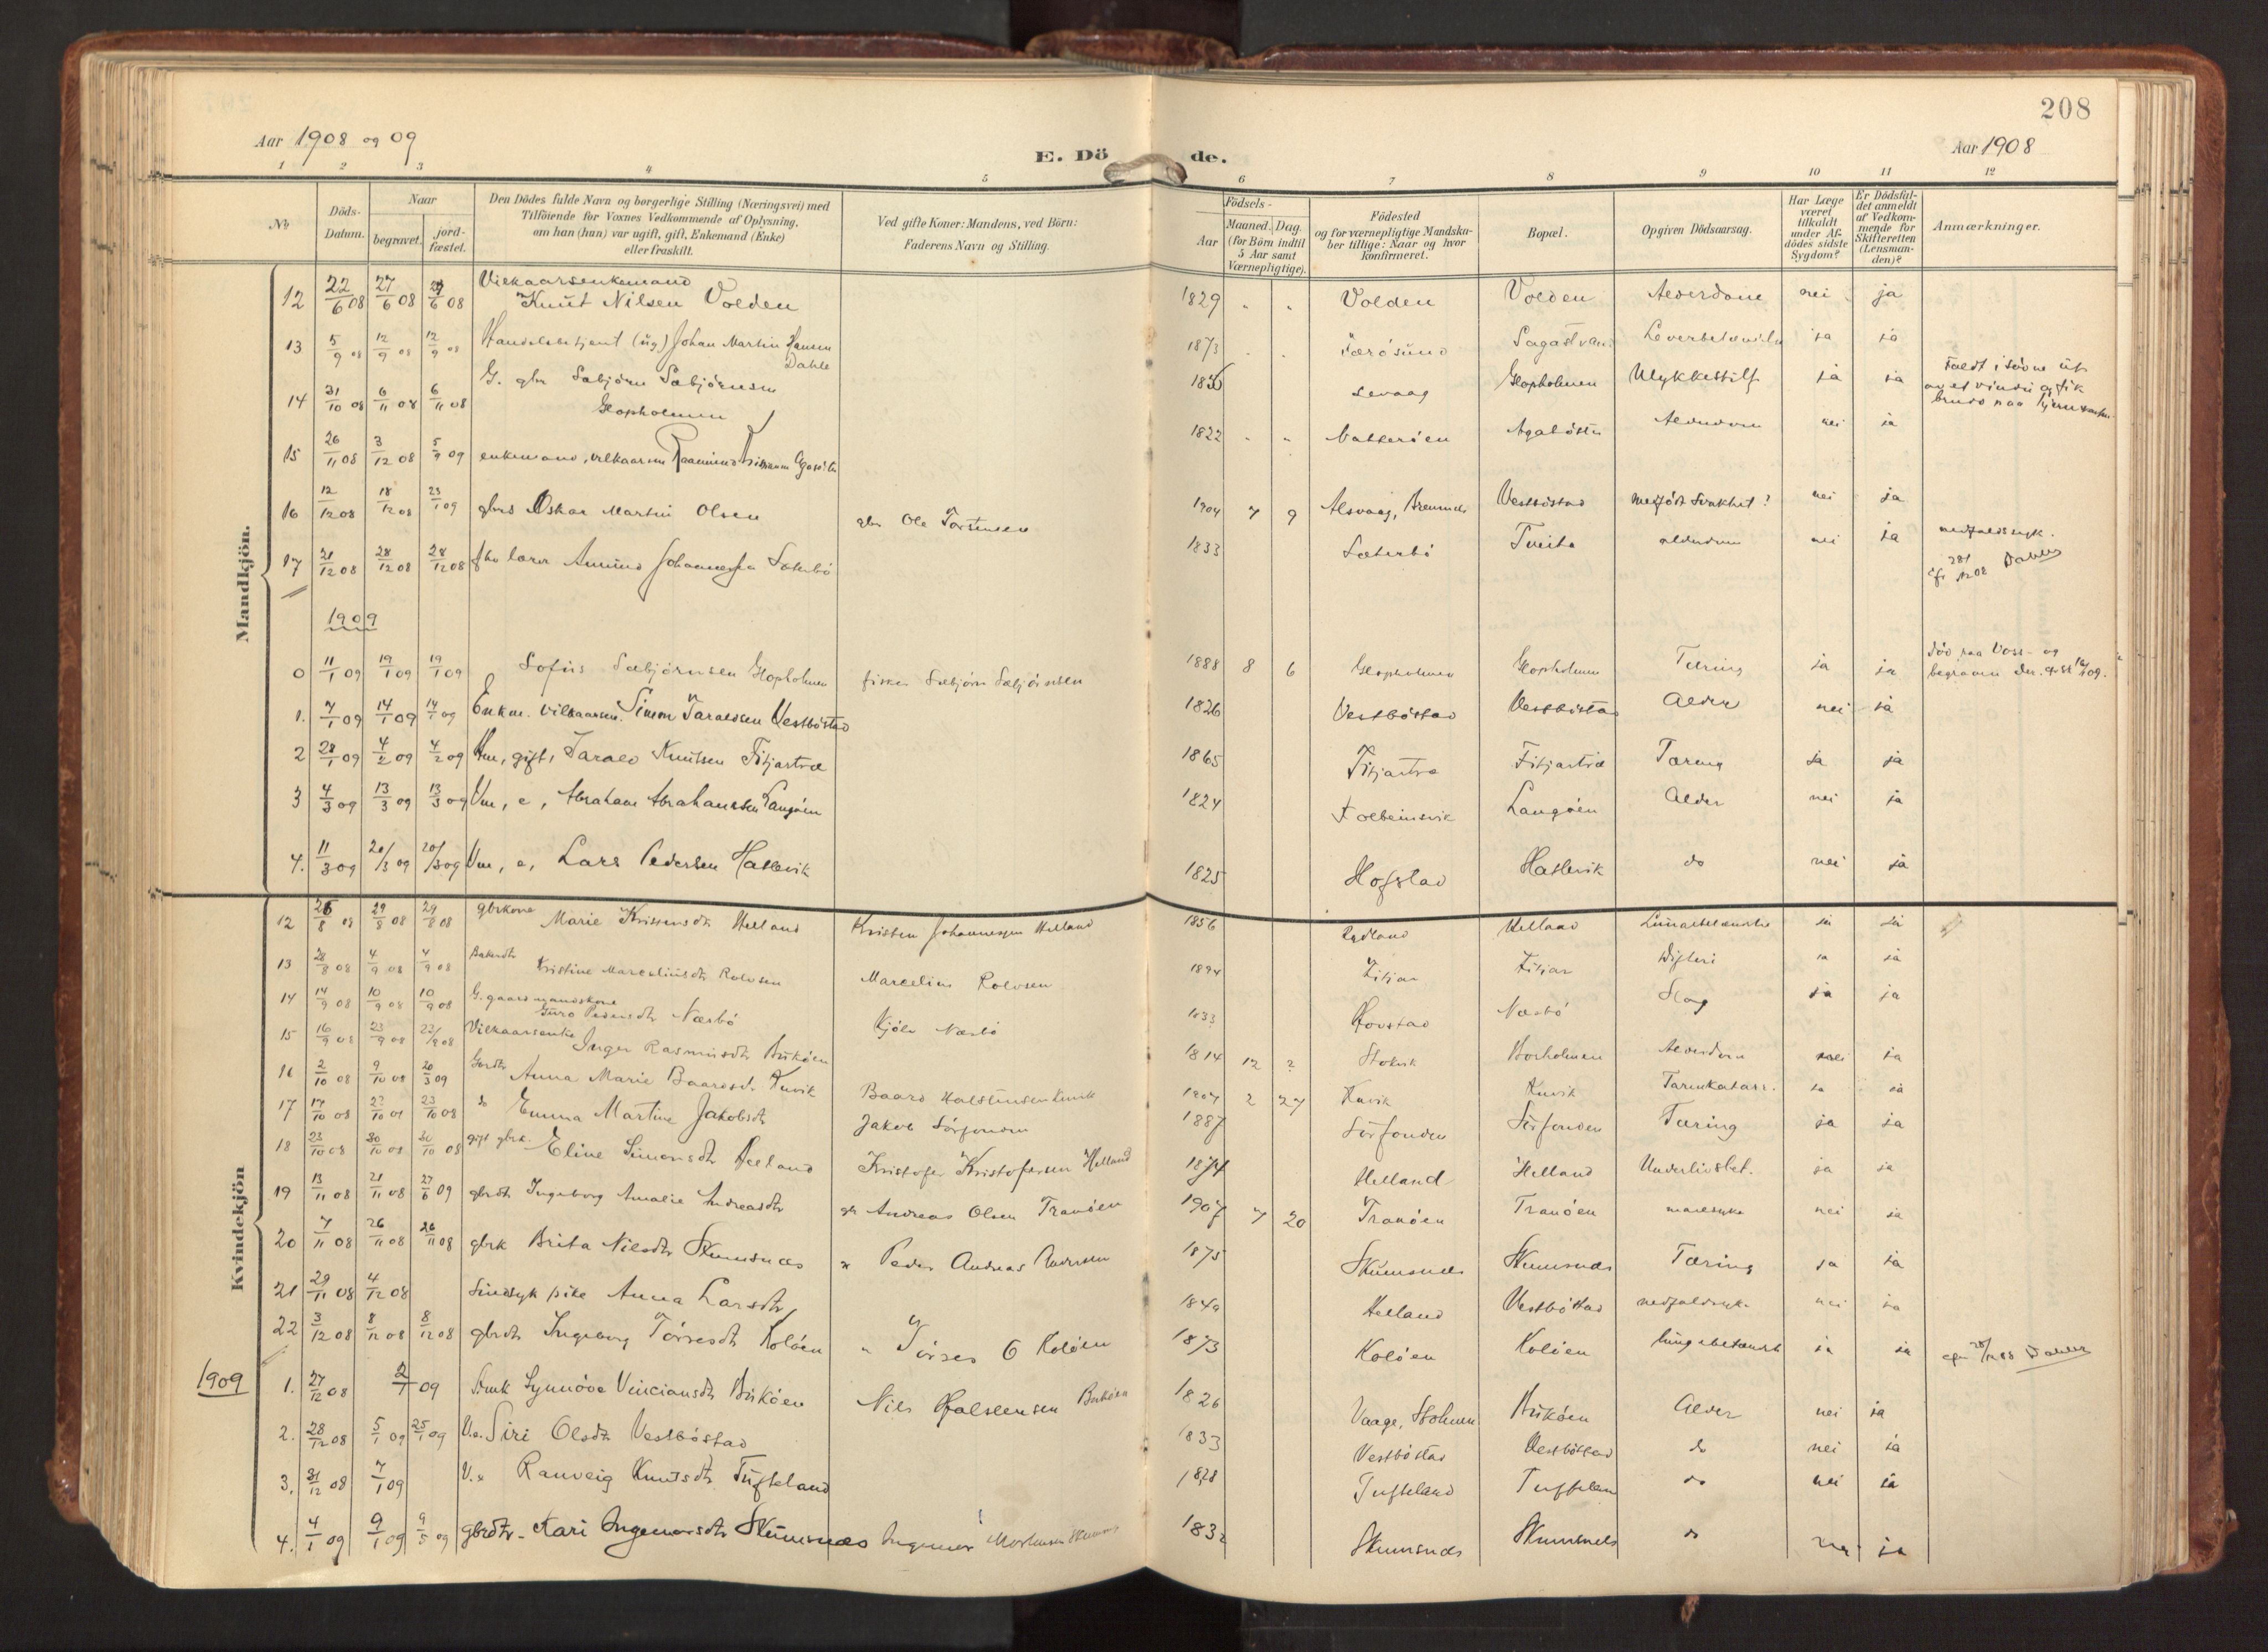 208
Aar 1908 og 09
E. Dö de.
Aar 1908
1 2 3 4 5 6 7 8 9 10 11 12
No
Döds-Datum.
Naar
begravet. jord-fæstet.
Den Dödes fulde Navn og borgerlige Stilling (Næringsvei) med
Tilföiende for Voxnes Vedkommende af Oplysning,
om han (hun) var ugift, gift, Enkemand (Enke)
eller fraskilt.
Ved gifte Koner: Mandens, ved Börn:
Faderens Navn og Stilling.
Födsels-
Aar Maaned. Dag.
(for Börn indtil
5 Aar samt
Værnepligtige).
Födested
og for værnepligtige Mandska-
ber tillige: Naar og hvor
konfirmeret.
Bopæl.
Opgiven Dödsaarsag.
Har Læge
været
tilkaldt
under Af-
dödes sidste
Sygdom?
Er Dödsfal-
det anmeldt
af Vedkom-
mende for
Skifteretten
(Lensman-
den)?
Anmærkninger.
Mandkjön.
12 22/6 08 27/6 08 27/6 08 Knut Nilsen Volden 1829 " " Volden Volden Alderdom nei ja
13 5/9 08 12/9 08 12/9 08 Handelsbetjent (ug) Johan Martin Hansen Dahle 1873 Færösund Sagstvan ja ja
14 31/10 08 6/11 08 6/11 08 G. gbr Sæbjörn Sæbjörnsen Glopholmen Glopholmen Ulykkestilf ja ja Faldt i søvne ut
av et vindu og fik
brud paa
15 26/11 08 3/12 08 5/9 09 enkemand, vilkaarsm 1822 " " nei ja
16 12/12 08 18/12 08 23/1 09 gbrs Oskar Martin Olsen gbr Ole Torstensen 1904 7 9 Alsvaag, Bremnes Vestböstad medfödt Svakhet? nei ja
17 21/12 08 28/12 08 28/12 08 fhv lærer Amund Johannessen Sæterbö 1833 Sæterbö Tveita alderdom nei ja nedfaldssyk.
Dahle
1909
0 11/1 09 19/1 09 19/1 09 Sofus Sæbjörnsen Glopholmen fisker Sæbjörn Sæbjörnsen 1888 8 6 Glopholmen Glopholmen Tæring ja ja död paa Voss- og
begraven der.
1. 7/1 09 14/1 09 14/1 09 Enkm. vilkaarsm. Simon Taraldsen Vestböstad 1826 Vestböstad Vestböstad Alder nei ja
2 28/1 09 4/2 09 4/2 09 gift, Tarald Knutsen Fitjartræ 1865 Fitjartræ Fitjartræ Tæring ja ja
3 4/3 09 13/3 09 13/3 09 Vm, e, Abraham Abrahamsen Langöen 1824 Kolbeinsvik Langöen Alder nei ja
4. 11/3 09 20/3 09 20/3 09 Vm, e, Lars Pedersen Hatlevik 1825 Hofstad Hatlevik do nei ja
Kvindekjön
12 29/8 08 29/8 08 gbrkone Marie Kristensdtr Helland Kristen Johannessen Helland 1856 Rydland Helland Lungebetændelse ja ja
13 28/8 08 4/9 08 4/9 08 Kristine Marceliusdtr Rolvsen Marcelius Rolvsen 1894 Fitjar Fitjar Difteri ja ja
14 10/9 08 10/9 08 G. gaardmandskone Guro Pedersdtr Næsbö Kjöln Næsbö 1833 Hovstad Næsbö Slag ja ja
15 16/9 08 23/9 08 23/9 08 Vilkaarsenke Inger Rasmusdtr Buköen 1814 12 2 Stokvik Borholmen Alderdom nei ja
16 2/10 08 9/10 08 20/3 09 Anna Marie Baardsdtr Kuvik Baard Halstensen Kuvik 1907 2 27 Kuvik Kuvik Tarmkatarr. ja ja
17 17/10 08 23/10 08 23/10 08 do Emma Martine Jakobsdtr Jakob Sörfonden 1887 Sörfonden Sörfonden Tæring ja ja
18 23/10 08 30/10 08 30/10 08 gift gbrk. Eline Simonsdtr Helland Kristofer Kristofersen Helland 1874 Helland Helland Underlivsbet. ja ja
19 13/11 08 21/11 08 27/6 09 gbrdtr Ingeborg Amalie Andreasdtr gbr Andreas Olsen Tranöen 1907 7 20 Tranöen Tranöen nei ja
20 7/11 08 26/11 08 26/11 08 gbrk Brita Nilsdtr Skumsnæs " Peder Andreas Andersen 1875 Skumsnes Skumsnes Tæring ja ja
21 29/11 08 4/12 08 Sindsyk pike Anna Larsdtr 1840 Helland Vestböstad nedfaldssyke nei ja
22 3/12 08 8/12 08 8/12 08 gbrdtr Ingeborg Törresdtr Kolöen " Törres O Kolöen 1873 Kolöen Kolöen lungebetændelse ja ja Dahle
1909
1. 27/12 08 2/1 09 Synnöve Vinciansdtr Buköen Nils Halstensen Buköen 1826 Vaage, Stolmen Buköen Alder nei ja
2. 28/12 08 5/1 09 25/1 09 V.e. Siri Olsdtr Vestböstad 1833 Vestböstad Vestböstad do nei ja
3. 31/12 08 7/1 09 V.e Ranveig Knutsdtr Tufteland 1828 Tufteland Tufteland do nei ja
4. 4/1 09 9/1 09 9/5 09 gbrdtr. Kari Ingemarsdtr Skumsnæs Ingemar Mortensen Skumsnes 1832 Skumsnes Skumsnes do nei ja